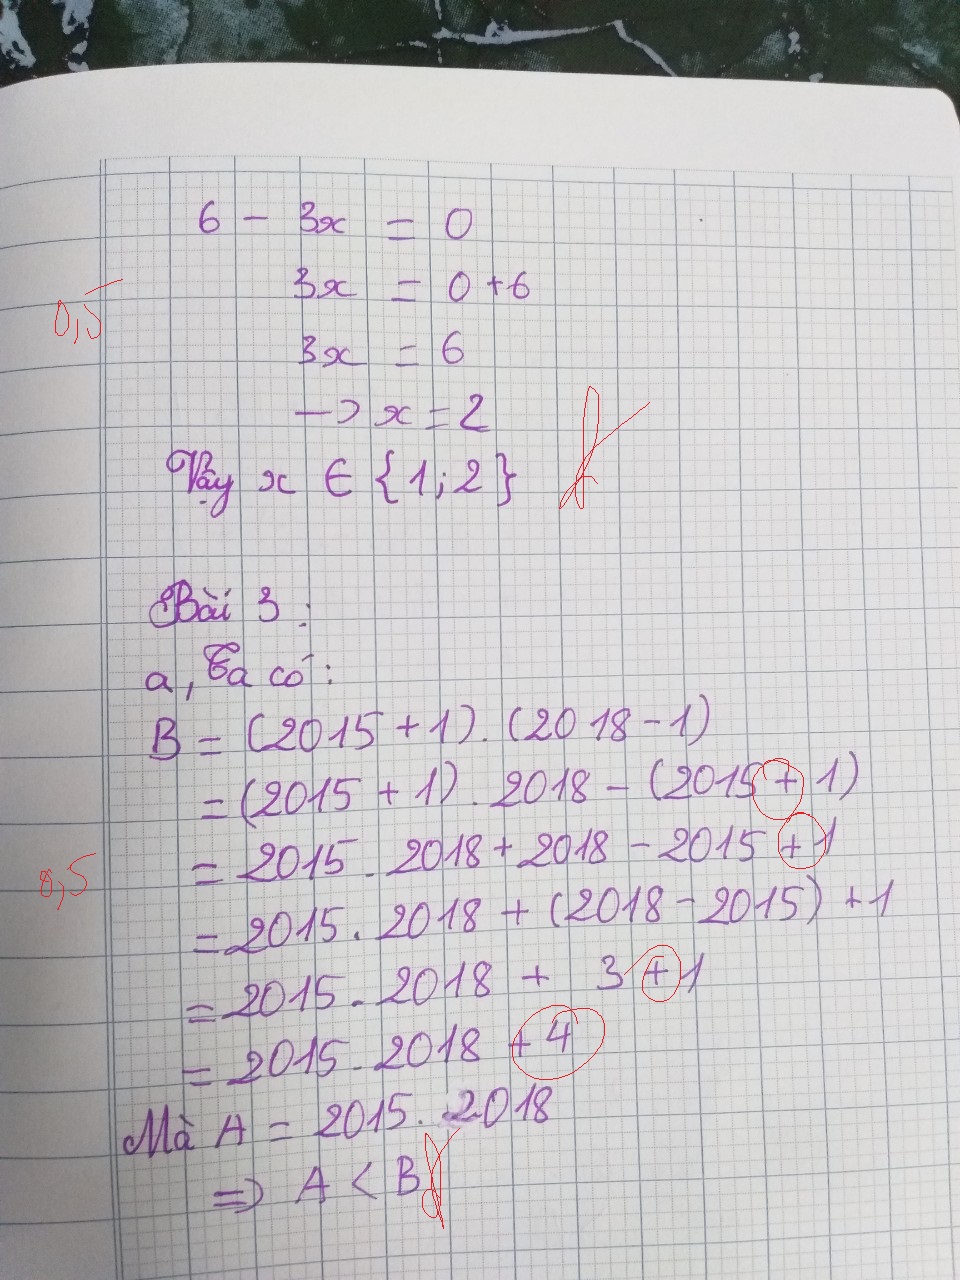 6 - 3x = 0
3x = 0 + 6
0,5
3x = 6
-> x = 2
Vậy x ∈ {1; 2}
Bài 3:
a, Ta có:
B = (2015 + 1). (2018 - 1)
= (2015 + 1). 2018 - (2015 + 1)
= 2015. 2018 + 2018 - 2015 + 1
0,5
= 2015. 2018 + (2018 - 2015) + 1
= 2015. 2018 + 3 + 1
= 2015. 2018 + 4
Mà A = 2015. 2018
=> A < B